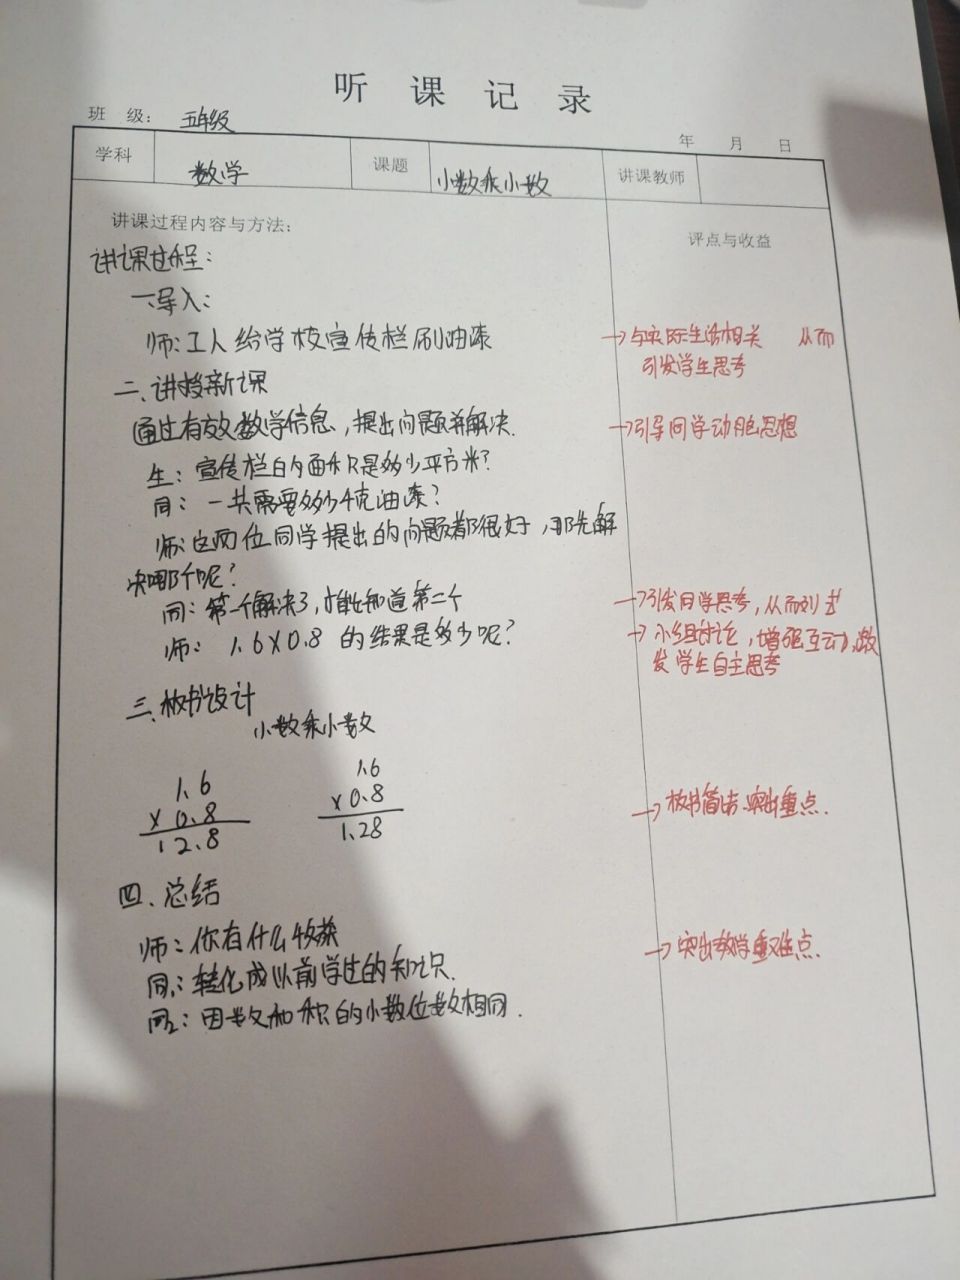 听课记录
班 级： 五年级
年 月 日
学科 数学 课题 小数乘小数 讲课教师
讲课过程内容与方法：
评点与收益
讲课过程：
一、导入：
师：工人给学校宣传栏刷油漆
→与实际生活相关 从而
引发学生思考
二、讲授新课
通过有效数学信息，提出问题并解决.
→引导同学动脑思想
生：宣传栏的面积是多少平方米？
同：一共需要多少千克油漆？
师：这两位同学提出的问题都很好，那先解
决哪个呢？
同：第一个解决了，才能知道第二个
→引发同学思考，从而列式
师： 1.6×0.8 的结果是多少呢？
→小组讨论，增强互动，激
发学生自主思考
三、板书设计
小数乘小数
1.6
× 0.8
12.8
1.6
× 0.8
1.28
→板书简洁、突出重点.
四、总结
师：你有什么收获
→突出教学重难点.
同1：转化成以前学过的知识.
同2：因数和积的小数位数相同.